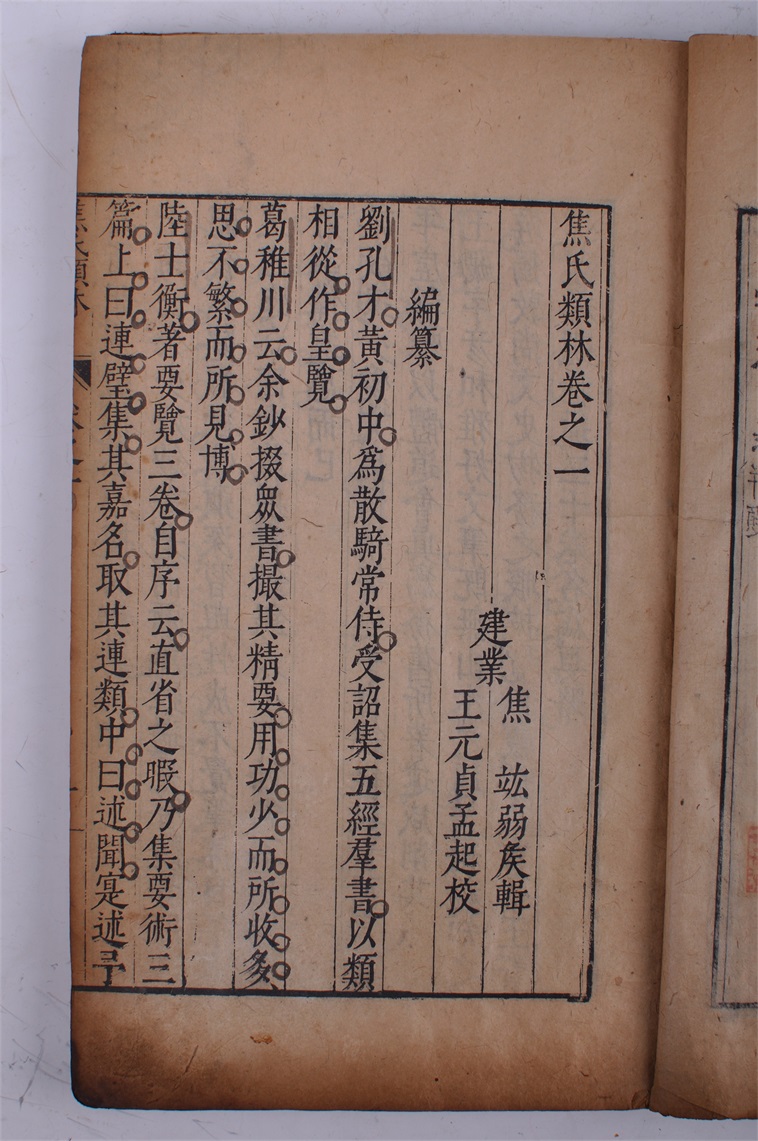 焦氏類林卷之一
建業
焦　竑弱矦輯
王元貞孟起校
編纂
劉孔才黃初中爲散騎常侍受詔集五經羣書以類
相從作皇覽
葛稚川云余鈔掇衆書撮其精要用功少而所收多
思不繁而所見博
陸士衡著要覽三卷自序云直省之暇乃集要術三
篇上曰連璧集其嘉名取其連類中曰述聞寔述予
焦氏類林